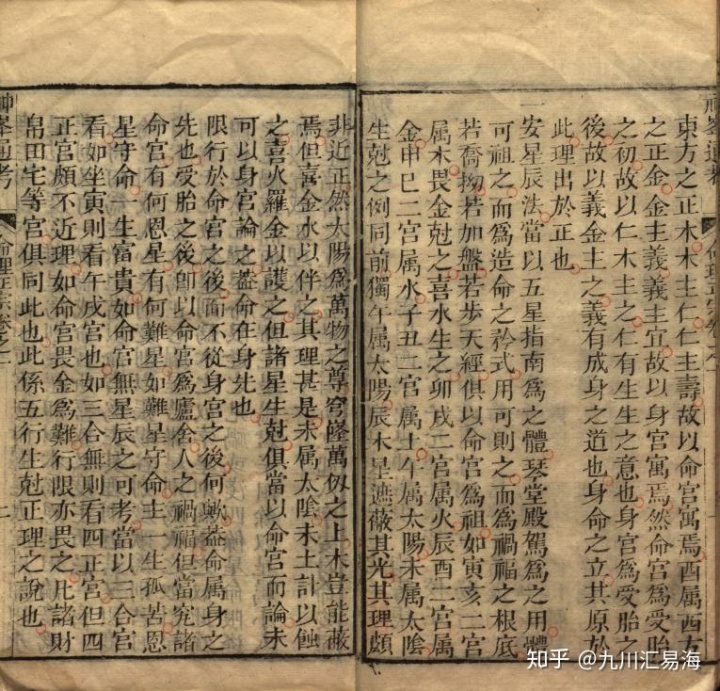 東方之正木木主仁仁主壽故以命宮寓焉酉属西方
之正金金主義義主宜故以身宮寓焉然命宮爲受胎
之初故以仁木主之仁有生生之意也身宮爲受胎之
後故以義金主之義有成身之道也身命之立其原於
此理出於正也
一安星辰法當以五星指南爲之體琴堂殿駕爲之用體
可祖之而爲造命之矜式用可則之而爲禍福之根底
若喬拗若加盤若歩天經俱以命宮爲祖如寅亥二宮
属木畏金尅之喜水生之卯戌二宮属火辰酉二宮属
金申巳二宮属水子丑二宮属土午属太陽未属太陰
生尅之例同前獨午属太陽辰木星遮蔽其光其理頗
非近正然太陽爲萬物之尊穹隆萬仭之上木豈能蔽
焉但喜金水以伴之其理甚是未属太陰未土計以蝕
之喜火羅金以護之但諸星生尅俱當以命宮而論未
可以身宮論之葢命在身先也
限行於命宮之後而不從身宮之後何歟葢命属身之
先也受胎之後卽以命宮爲廬舍人之禍福但當究諸
命宮有何恩星有何難星如難星守命主一生孤苦恩
星守命一生富貴如命宮無星辰之可考當以三合宮
看如坐寅則看午戌宮也如三合無則看四正宮但四
正官頗不近理如命宮畏金爲難行限亦畏之比諸財
帛田宅等宮俱同此也此係五行生尅正理之說也
神峯通考
命理正宗卷之一
知乎 @九川汇易海